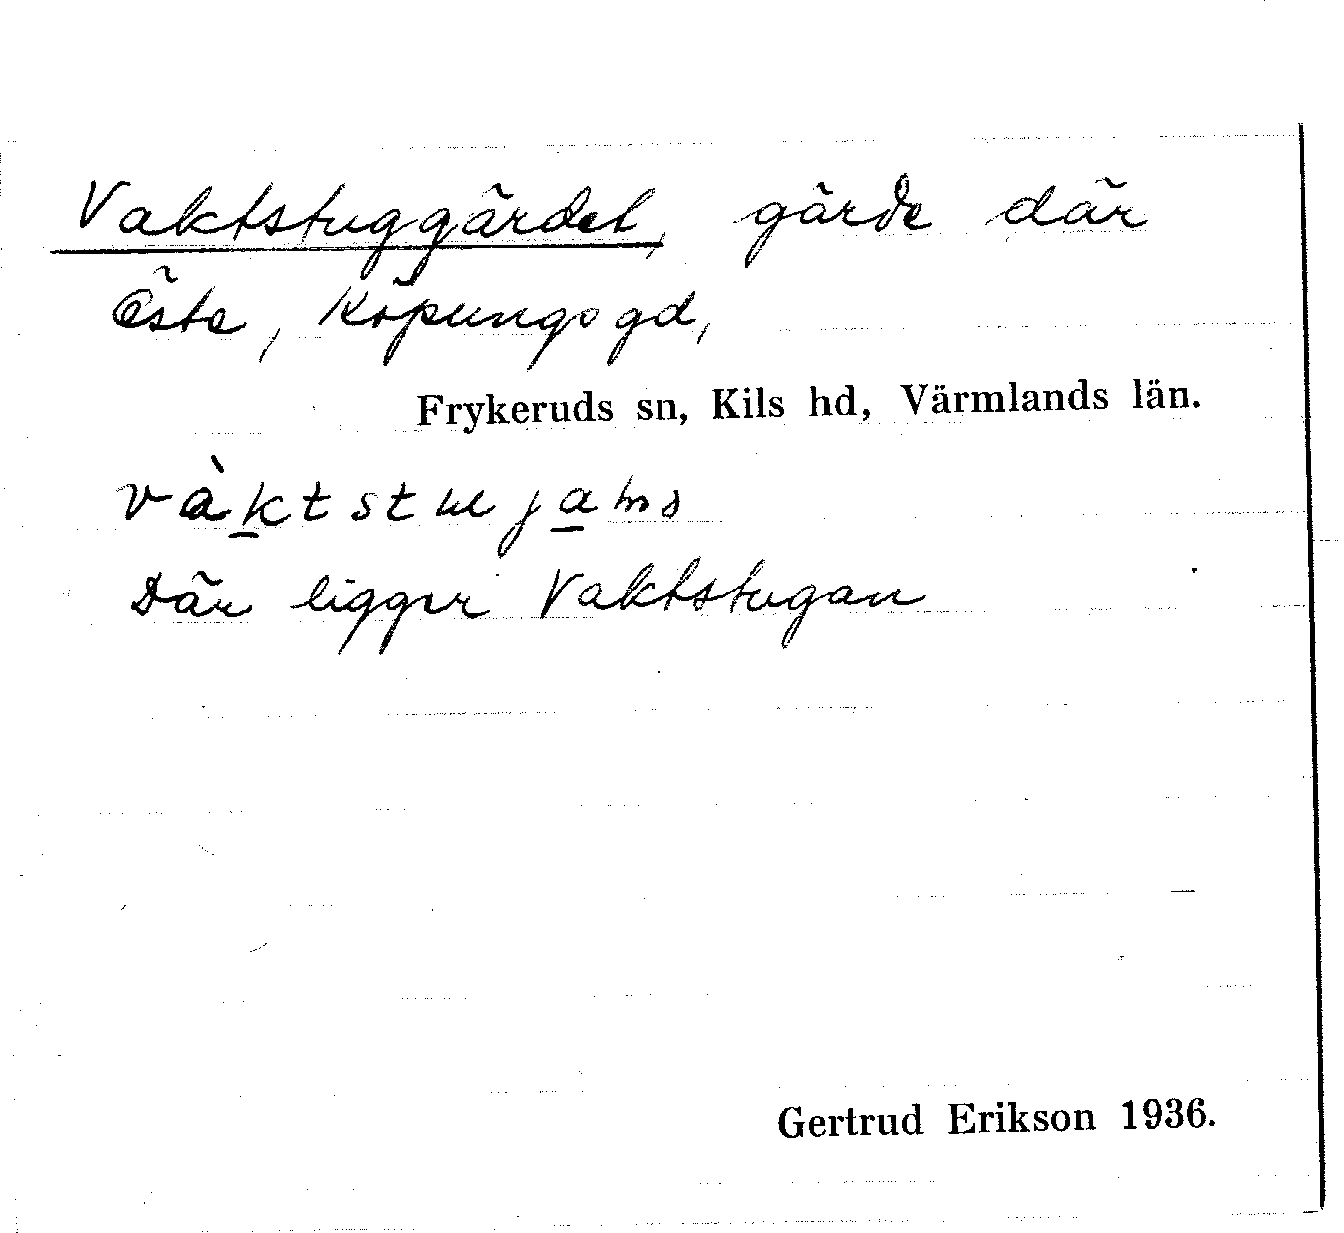 Vaktstuggärdet, gärde där
Öste, Köpungsgd,
Frykeruds sn, Kils hd, Värmlands län.
Där ligger Vaktstugan
Gertrud Erikson 1936.